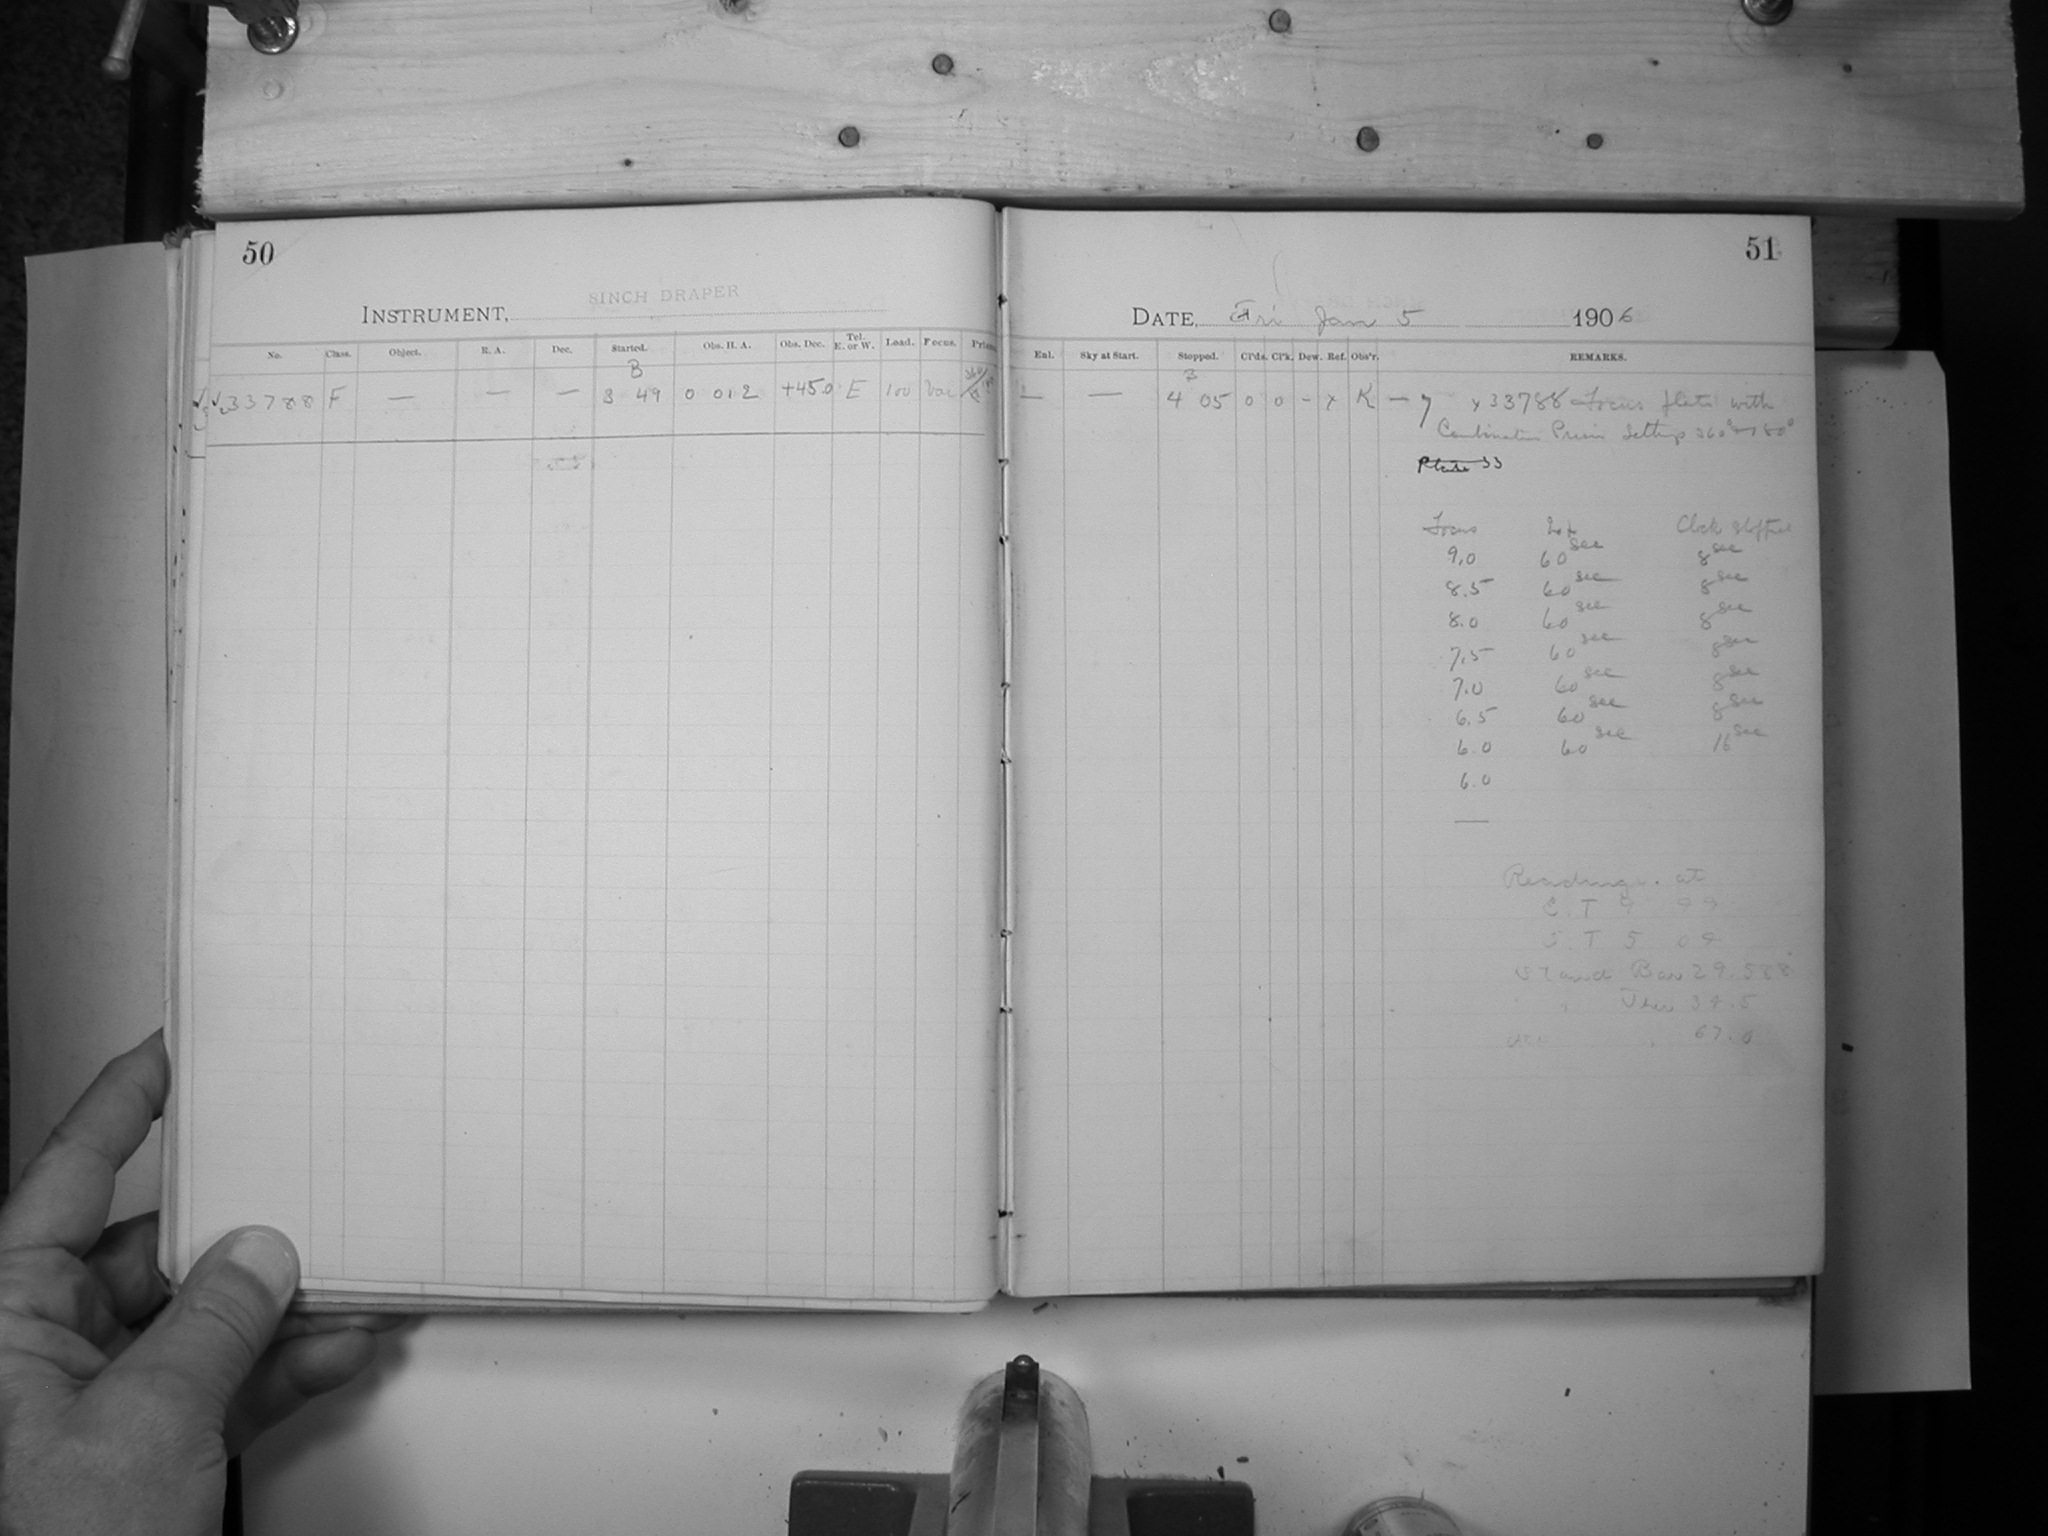 50
8INCH DRAPER
INSTRUMENT,
No. Class. Object. R. A. Dec. Started. Obs. H. A. Obs. Dec. Tel. E. or W. Load. Focus. Prism
B
33788 F — — — 3 49 0 01 2 +45.0 E 100 Var 360
51
DATE, Fri Jan 5 1906
Enl. Sky at Start. Stopped. Cl'ds. Cl'k. Dew. Ref. Obs'r. REMARKS.
B
— — 4 05 0 0 - x K — 7 x 33788 Focus plate with
Combination Prism Settings 360° 180°
Plate 33
Focus Ex Clock stopped
9.0 60 sec 8 sec
8.5 60 sec 8 sec
8.0 60 sec 8 sec
7.5 60 sec 8 sec
7.0 60 sec 8 sec
6.5 60 sec 8 sec
6.0 60 sec 16 sec
6.0
Readings at
S.T 5 04
Stand Bar 29.588
" Ther 34.5
67.0